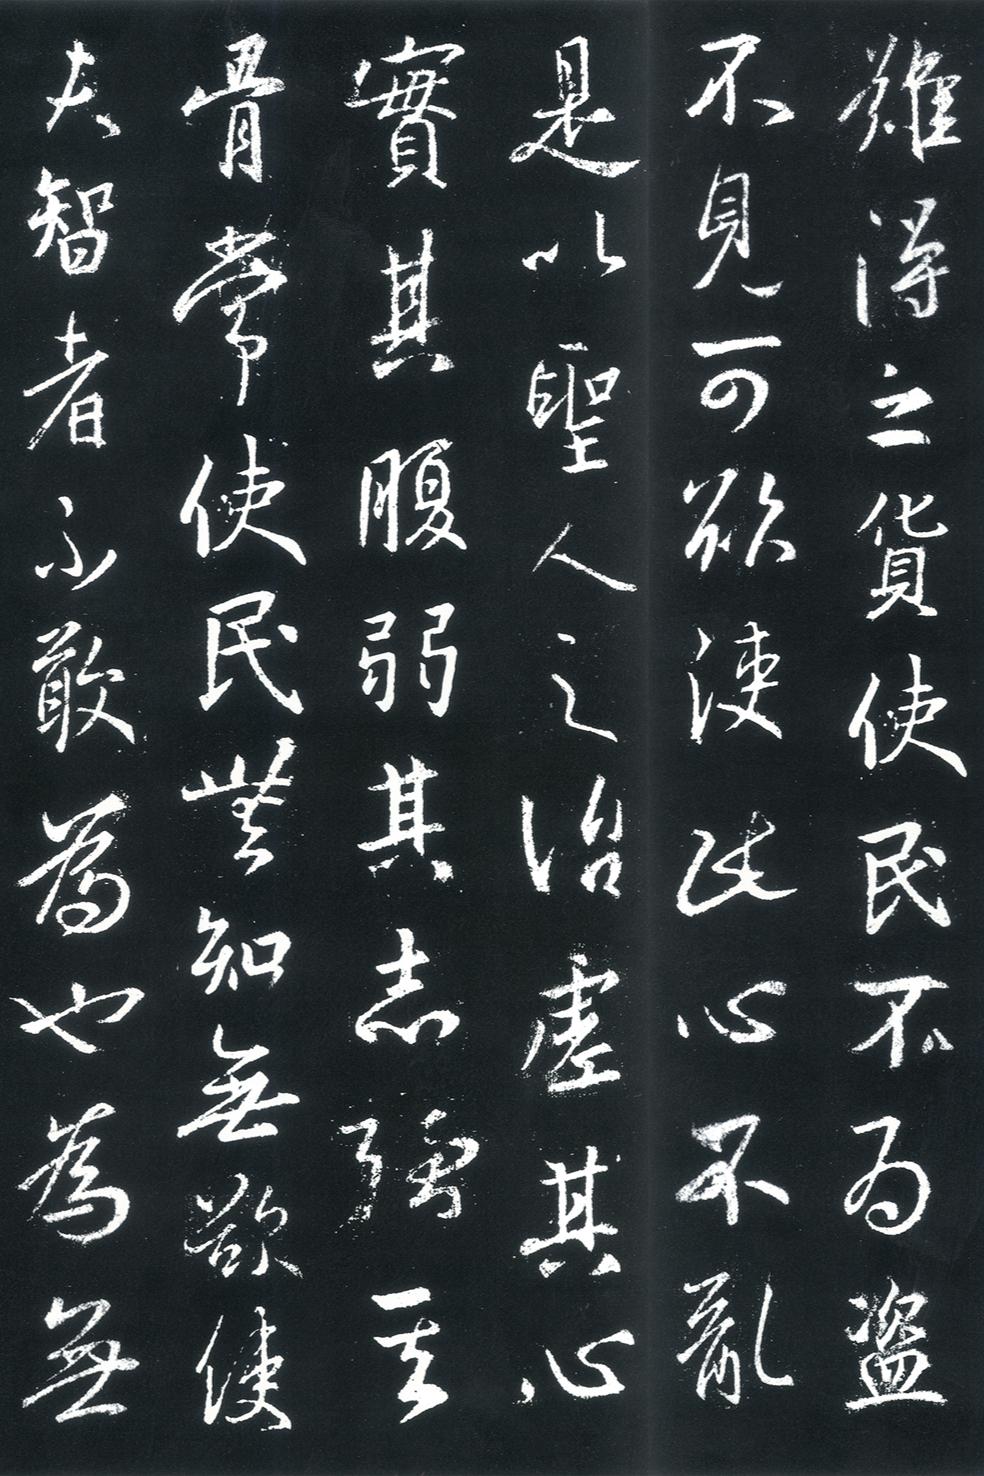 難得之貨使民不為盜
不見可欲使此心不亂
是以聖人之治虛其心
實其腹弱其志強其
骨常使民無知無欲使
夫智者不敢為也為無